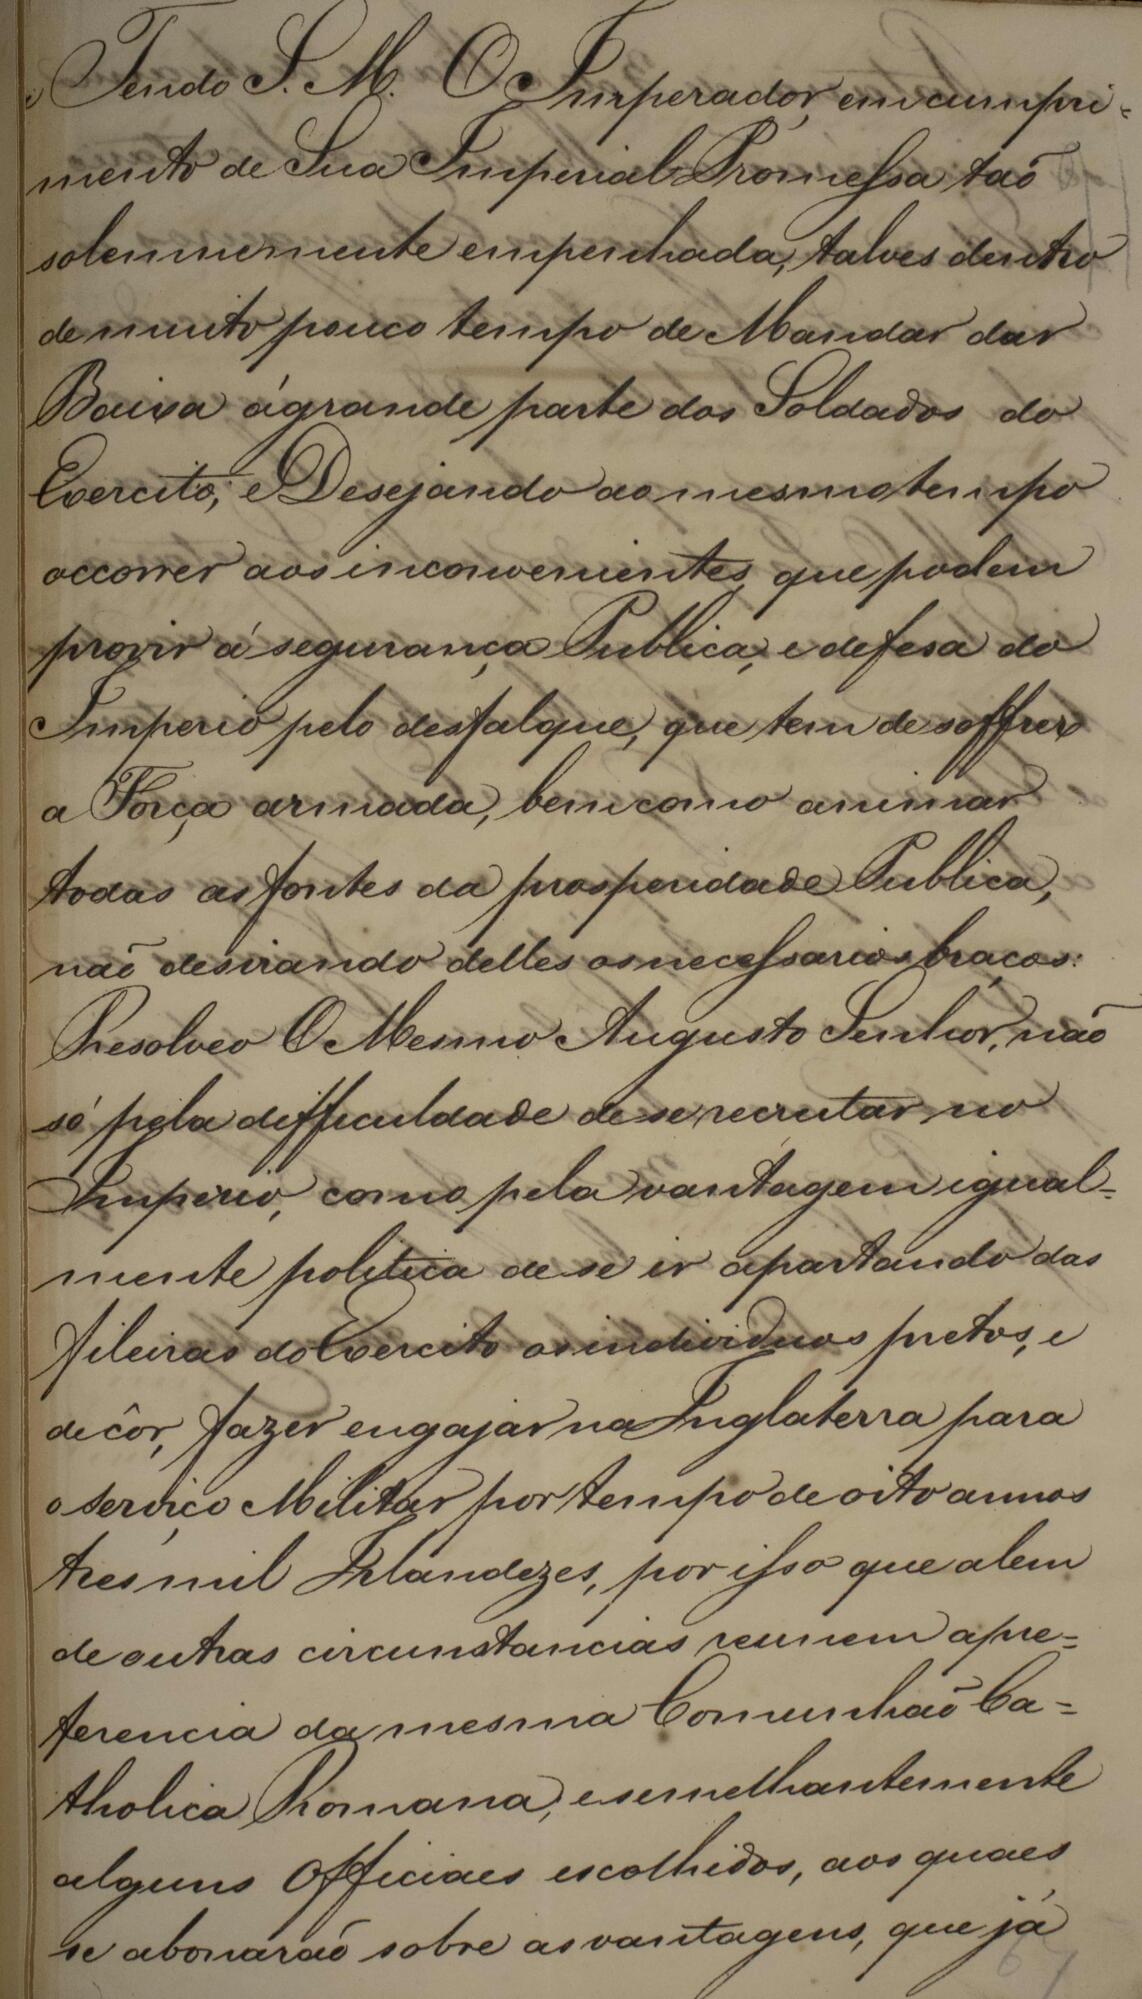 Tendo S. M. O Imperador, em cumpri-
mento de Sua Imperial Promessa taõ
solemnemente empenhada, talves dentro
de muito pouco tempo de Mandar dar
Baixa á grande parte dos Soldados do
Exercito; e Desejando ao mesmo tempo
occorrer aos inconvenientes, que podem
provir á segurança Publica, e defesa do
Imperio pelo desfalque, que tem de soffrer
a Força armada, bem como animar
todas as fontes da prosperidade Publica,
naõ desviando delles os necessarios braços:
Resolveo O Mesmo Augusto Senhor, naõ
só pela difficuldade de se recrutar no
Imperio, como pela vantagem igual-
mente politica de se ir apartando das
fileiras do Exercito os individuos pretos, e
de côr, fazer engajar na Inglaterra para
o serviço Militar por tempo de oito annos
tres mil Irlandezes, por isso que alem
de outras circunstancias reunem a pre-
ferencia da mesma Comunhaõ Ca-
tholica Romana, e semelhantemente
alguns Officiaes escolhidos, aos quaes
se abonaraõ sobre as vantagens, que já
67